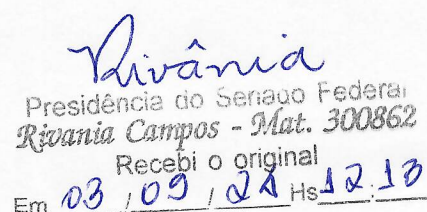 Rivânia
Presidência do Senado Federal
Rivania Campos - Mat. 300862
Recebi o original
Em 03 / 09 / Hs 12:13